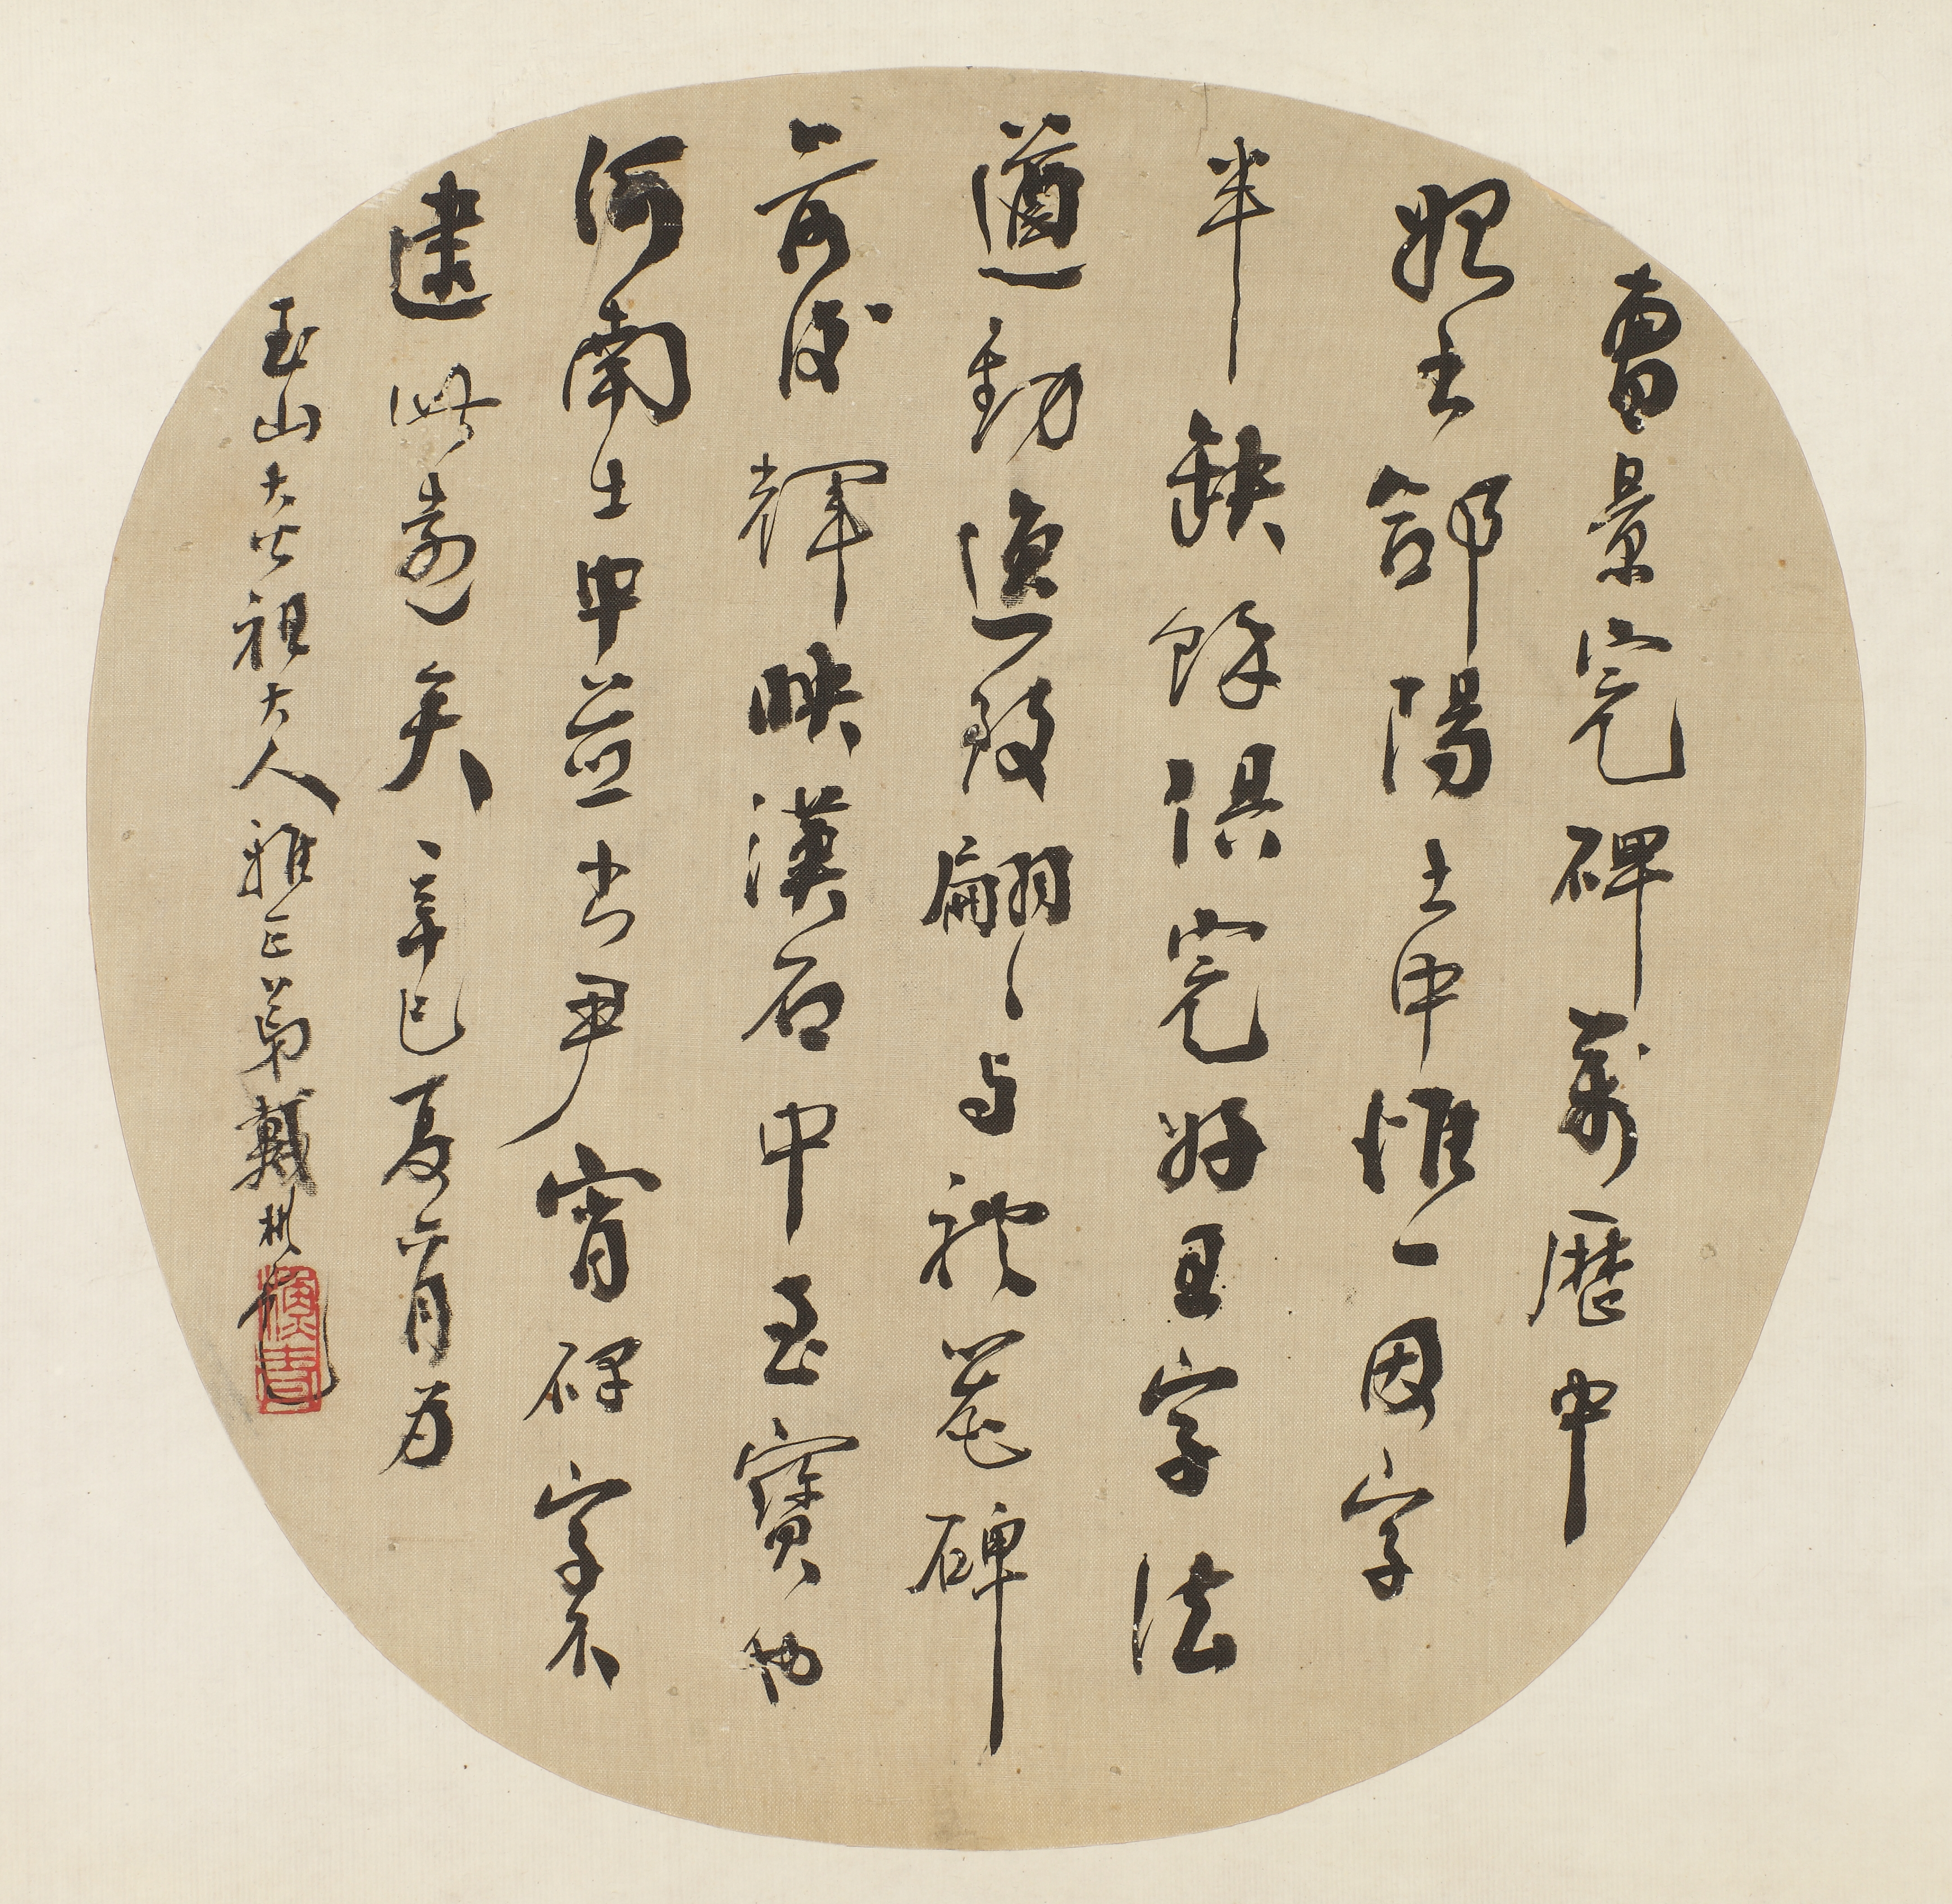 曹景完碑萬歷中
始出郃陽土中惟一因字
半缺餘俱完好且字法
遒勁逸致翩〻與禮器碑
前後輝映漢石中至寶也
河南土中並出尹宙碑字不
逮此遠矣辛巳夏六月為
玉山大公祖大人雅正弟戴彬